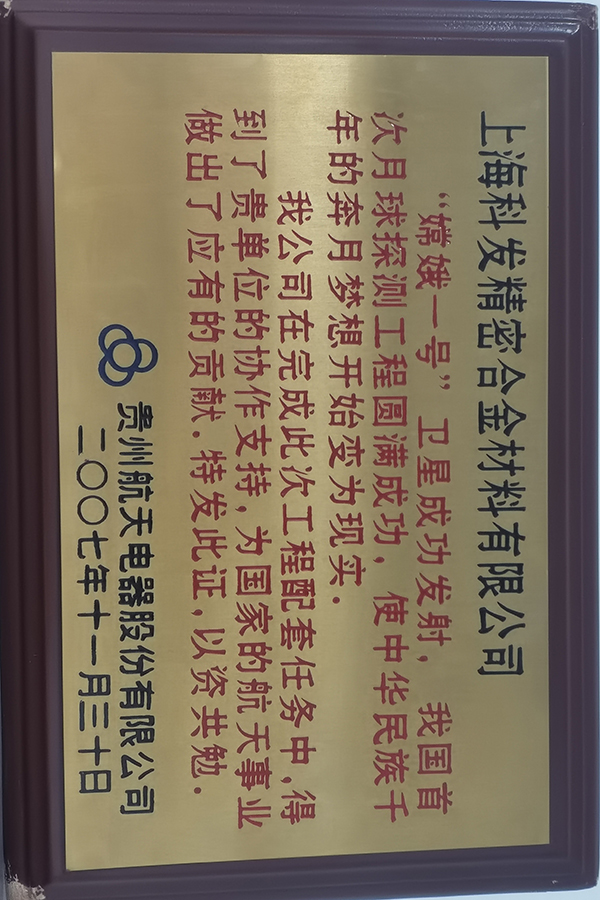 上海科发精密合金材料有限公司
“嫦娥一号”卫星成功发射，我国首
次月球探测工程圆满成功，使中华民族千
年的奔月梦想开始变为现实.
我公司在完成此次工程配套任务中,得
到了贵单位的协作支持,为国家的航天事业
做出了应有的贡献.特发此证,以资共勉.
贵州航天电器股份有限公司
二〇〇七年十一月三十日